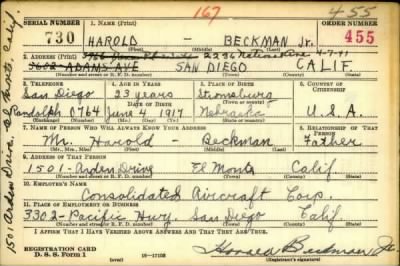 167
455
SERIAL NUMBER 1. NAME (Print) ORDER NUMBER
730 HAROLD - BECKMAN Jr. 455
(First) (Middle) (Last)
2. ADDRESS (Print) 2236 4-7-41
3602 ADAMS AVE SAN DIEGO CALIF.
(Number and street or R. F. D. number) (Town) (County) (State)
3. TELEPHONE 4. AGE IN YEARS 5. PLACE OF BIRTH 6. COUNTRY OF CITIZENSHIP
San Diego 23 years Stromsburg
DATE OF BIRTH
Randolph 0764 June 4 1917 Nebraska U.S.A.
(Exchange) (Number) (Mo.) (Day) (Yr.) (State or country)
7. NAME OF PERSON WHO WILL ALWAYS KNOW YOUR ADDRESS 8. RELATIONSHIP OF THAT PERSON
Mr. Harold - Beckman Father
(Mr., Mrs., Miss) (First) (Middle) (Last)
9. ADDRESS OF THAT PERSON
1501-Arden Drive El Monte Calif.
(Number and street or R. F. D. number) (Town) (County) (State)
10. EMPLOYER'S NAME
Consolidated Aircraft Corp.
11. PLACE OF EMPLOYMENT OR BUSINESS
3302-Pacific Hwy. San Diego Calif.
(Number and street or R. F. D. number) (Town) (County) (State)
I AFFIRM THAT I HAVE VERIFIED ABOVE ANSWERS AND THAT THEY ARE TRUE.
REGISTRATION CARD
D. S. S. Form 1 (over) 16-17105 Harold Beckman Jr.
1501-Arden Drive El Monte, Calif.